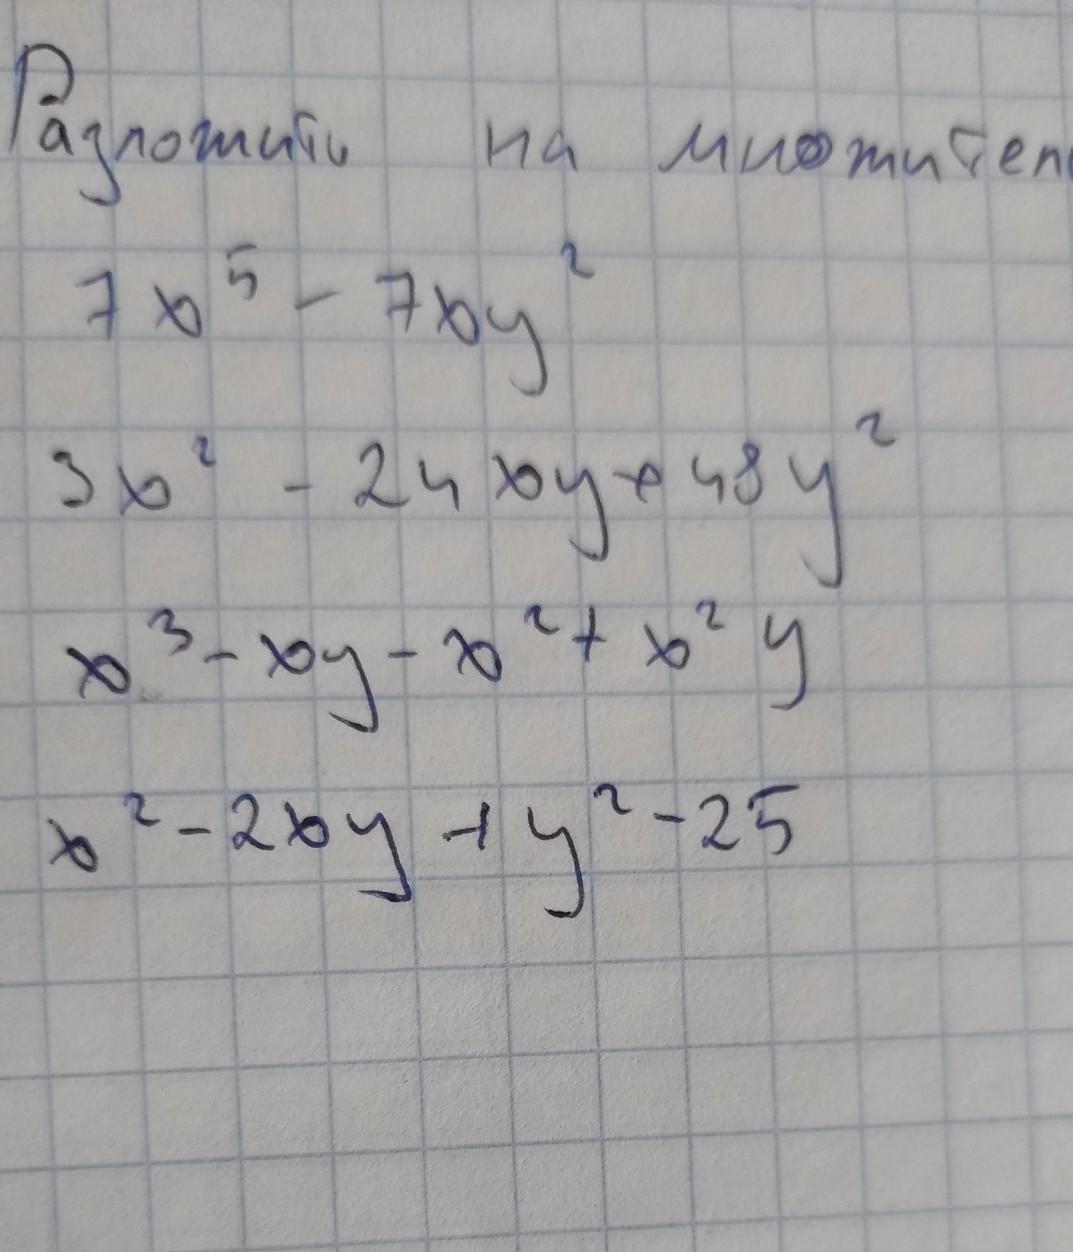 Разложить на множител
7x⁵ - 7xy²
3x² - 24xy + 48y²
x³ - xy - x² + x²y
x² - 2xy + y² - 25